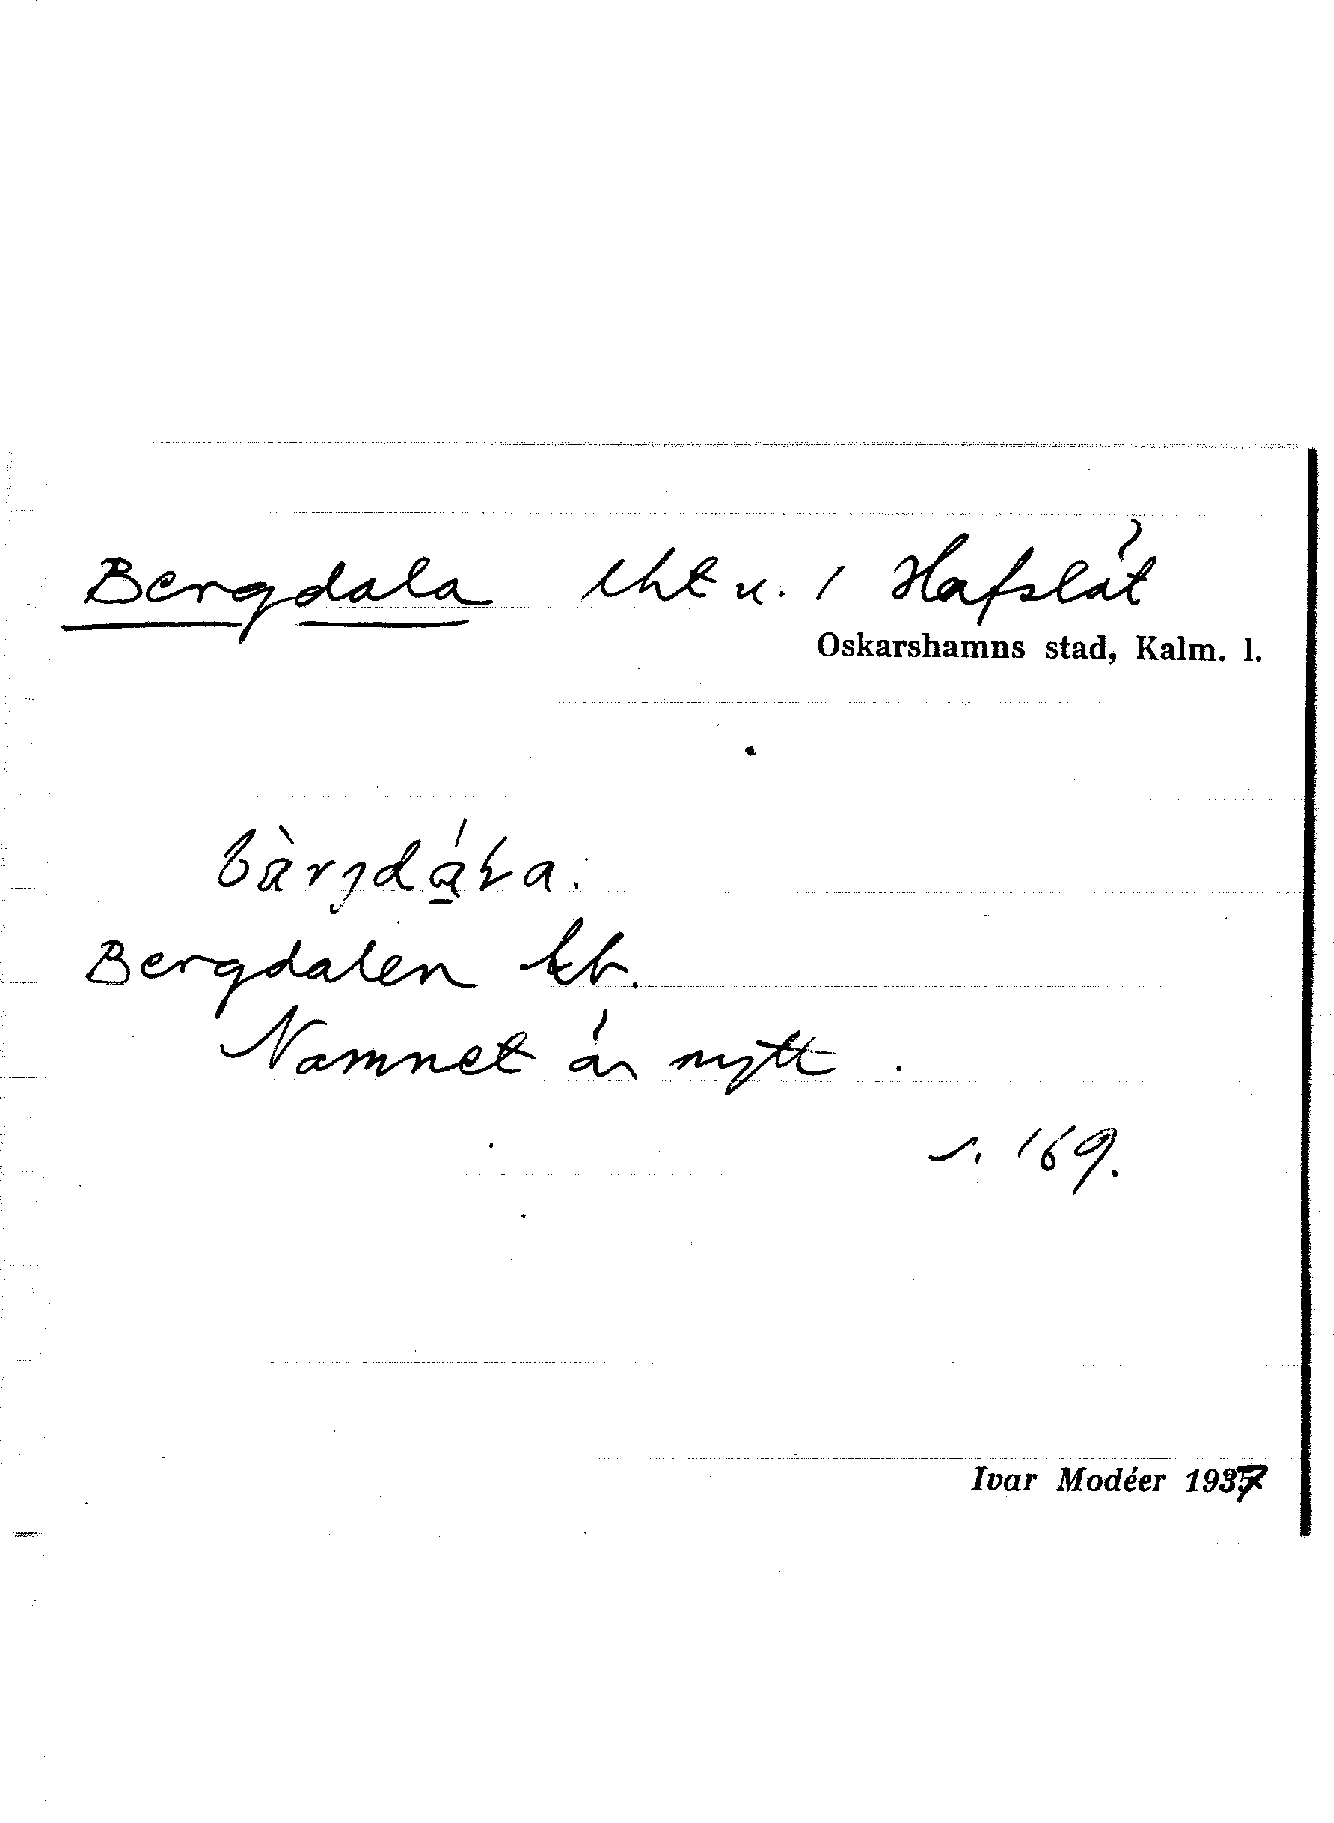 Bergdala lht u. / Hafslät
Oskarshamns stad, Kalm. l.
Bergdalen kb.
Namnet är nytt.
s. 169.
Ivar Modéer 1937